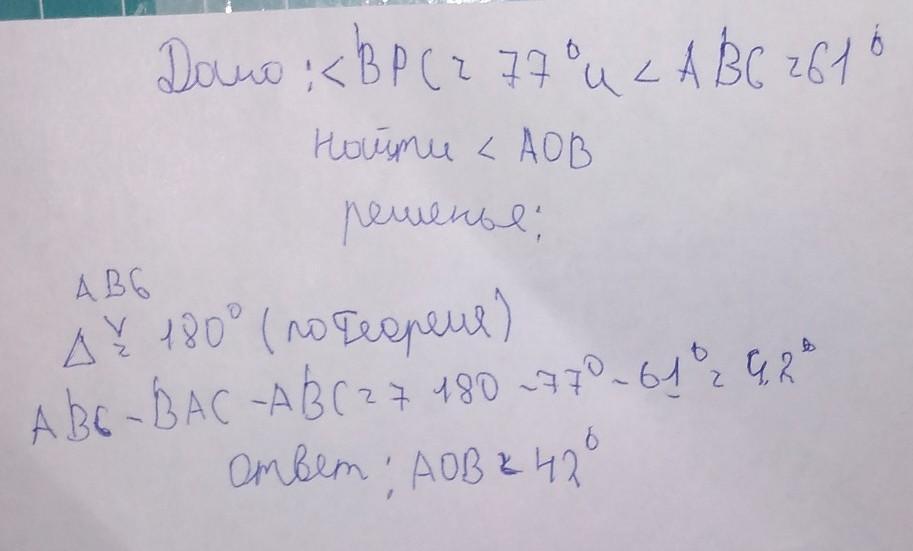 Дано: <BPC = 77° и < ABC = 61°
найти < AOB
решенье;
ABC
Δ = 180° (по теореме)
ABC - BAC - ABC = 7 180 - 77° - 61° = 42°
ответ; AOB = 42°